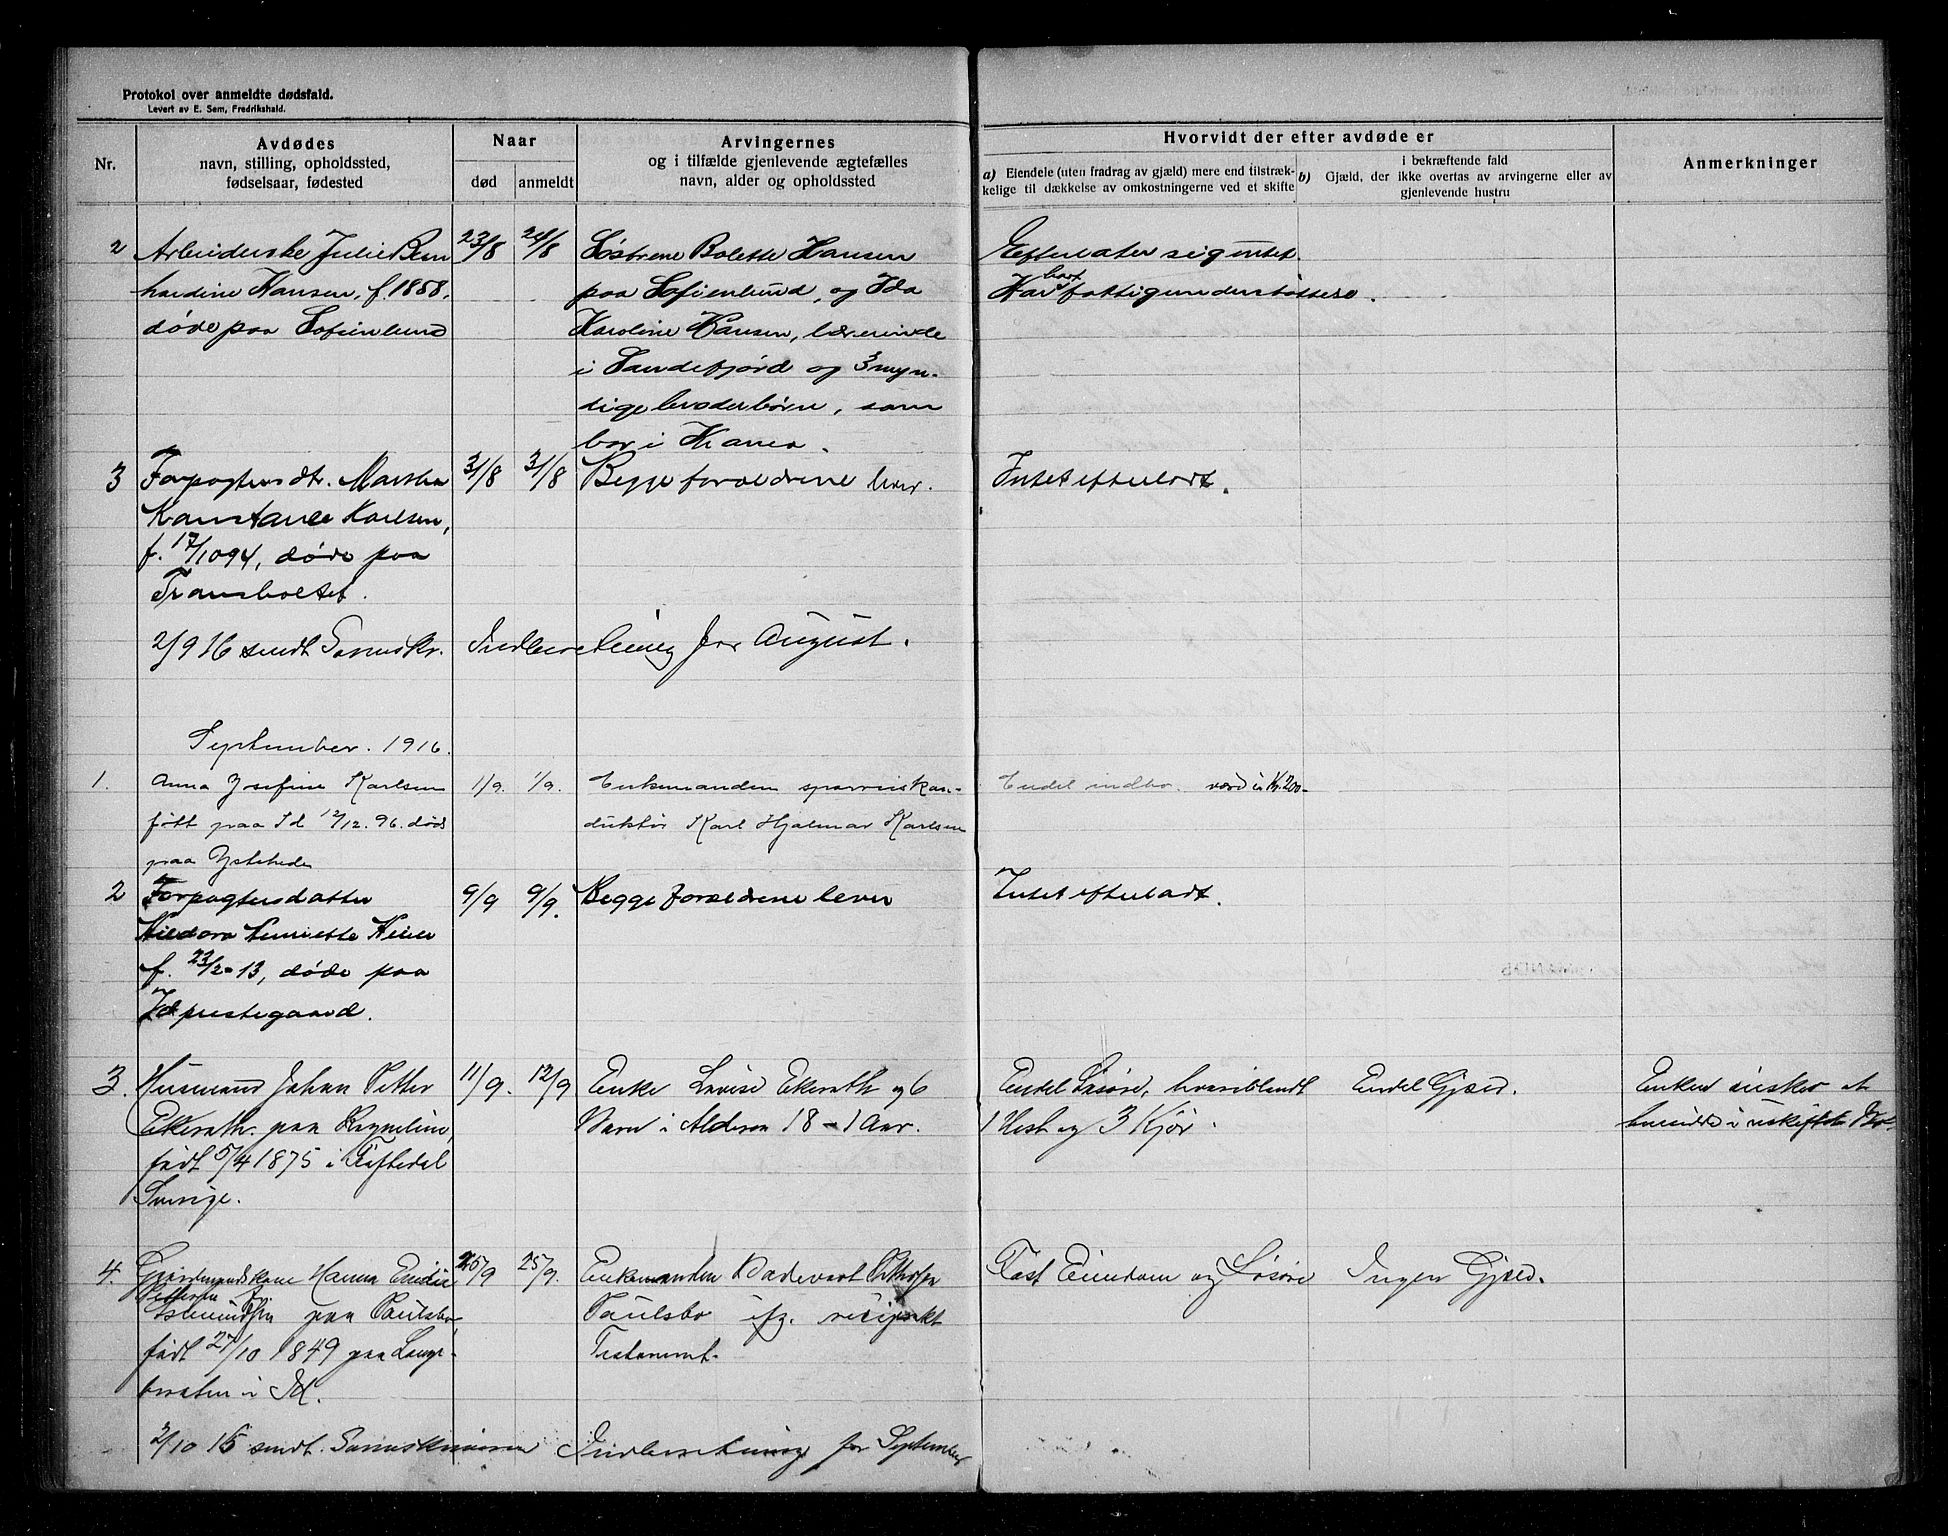 Protokol over anmeldte dødsfald.
Levert av E. Sem, Fredrikshald.
Nr.
Avdødes
navn, stilling, opholdssted,
fødselsaar, fødested
Naar
død
anmeldt
Arvingernes
og i tilfælde gjenlevende ægtefælles
navn, alder og opholdssted
Hvorvidt der efter avdøde er
a) Eiendele (uten fradrag av gjæld) mere end tilstræk-
kelige til dækkelse av omkostningerne ved et skifte
i bekræftende fald
b) Gjæld, der ikke overtas av arvingerne eller av
gjenlevende hustru
Anmerkninger
2
Arbeiderske Julie Bern
hardine Hansen, f. 1858.
døde paa Sofienlund
23/8
24/8
Søstrene Bolette Hansen
paa Sofienlund, og Ida
Karoline Hansen, lærerinde
i Sandefjord og 3 myn-
dige broderbørn, som
bor i Krania.
Efterlater sig intet.
Har hat fattigunderstøttelse.
3
Forpagtersdtr. Martha
Konstance Karlsen,
f. 17/10 94, døde paa
31/8
31/8
Begge forældrene lever.
Intet efterladt.
2/9 16 sendt Sorenskr. Indberetning for August.
September. 1916.
1.
Anna Josefine Karlsen
født paa Id 12/12. 96. død
paa Ystehede
1/9.
1/9.
Enkemanden sporveiskon-
duktør Karl Hjalmar Karlsen
Endel indbo. værd ca Kr. 200-
2
Forpagterdatter
Henriette
f. 23/2-13, døde paa
Id prestegaard.
9/9
9/9.
Begge forældrene lever
Intet efterladt.
3.
Husmand Johan Petter
Ekerath. paa
født 5/4 1875 i Töftedal
Sverige.
11/9.
12/9
Enke Lovise Ekerath og 6
Barn i Alderen 18 - 1 Aar.
Endel Løsøre, hvoriblandt
1 Hest og 3 Kjør.
Endel Gjæld.
Enken ønsker at
hensidde i uskiftet Bo.
4.
Gaardmandskone Hanna Emilie
Pettersen f.
paa Paulsbo,
født 27/10 1849 paa Lang-
braaten i Id.
25/9
25/9.
Enkemanden
Paulsbo ifg. resiprokt
Testament.
Fast Eiendom og Løsøre
Ingen Gjæld.
2/10 16 sendt. Sorenskriveren Indberetning for September